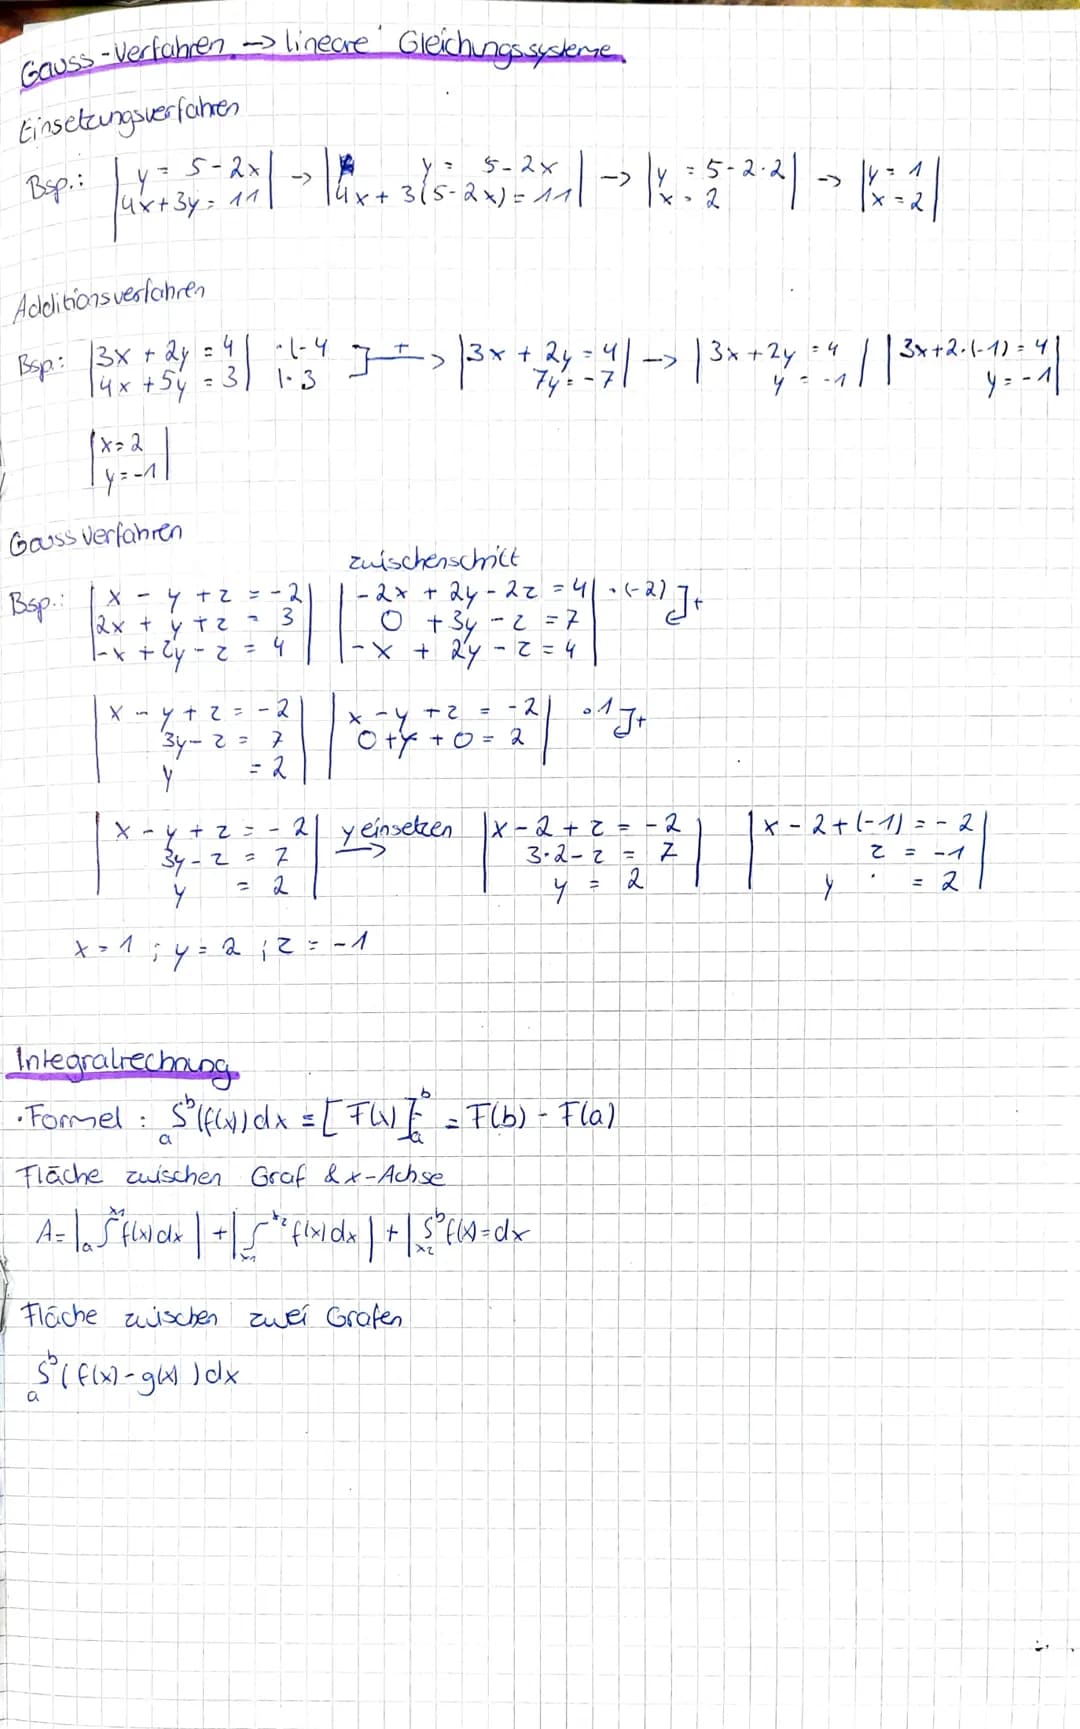 Gauss-Verfahren -> lineare Gleichungssysteme
Einsetzungsverfahren
Bsp.: |y = 5-2x| -> |y = 5-2x| -> |y = 5-2·2| -> |y = 1|
|4x+3y = 11| |4x + 3(5-2x) = 11| |x = 2| |x = 2|
Additionsverfahren
Bsp: |3x + 2y = 4| ·(-4 ]+-> |3x + 2y = 4| -> |3x + 2y = 4| |3x+2·(-1) = 4|
|4x + 5y = 3| |·3 7y = -7| y = -1| y = -1|
|x = 2|
|y = -1|
Gauss Verfahren
zwischenschritt
Bsp.: |x - y + z = -2| |-2x + 2y - 2z = 4| ·(-2) ]+
|2x + y + z = 3| |0 + 3y - z = 7|
|-x + 2y - z = 4| |-x + 2y - z = 4|
|x - y + z = -2| |x - y + z = -2| ·1 ]+
3y - z = 7| |0 + y + 0 = 2|
y = 2|
|x - y + z = -2| y einsetzen -> |x - 2 + z = -2| |x - 2 + (-1) = -2|
3y - z = 7| 3·2 - z = 7| z = -1|
y = 2| y = 2| y = 2|
x = 1 ; y = 2 ; z = -1
Integralrechnung
·Formel : a∫b (f(x)) dx = [F(x)]ba = F(b) - F(a)
Fläche zwischen Graf & x-Achse
A = |a∫x1 f(x) dx| + |x1∫x2 f(x) dx| + |x2∫b f(x) = dx
Fläche zwischen zwei Grafen
a∫b (f(x) - g(x)) dx